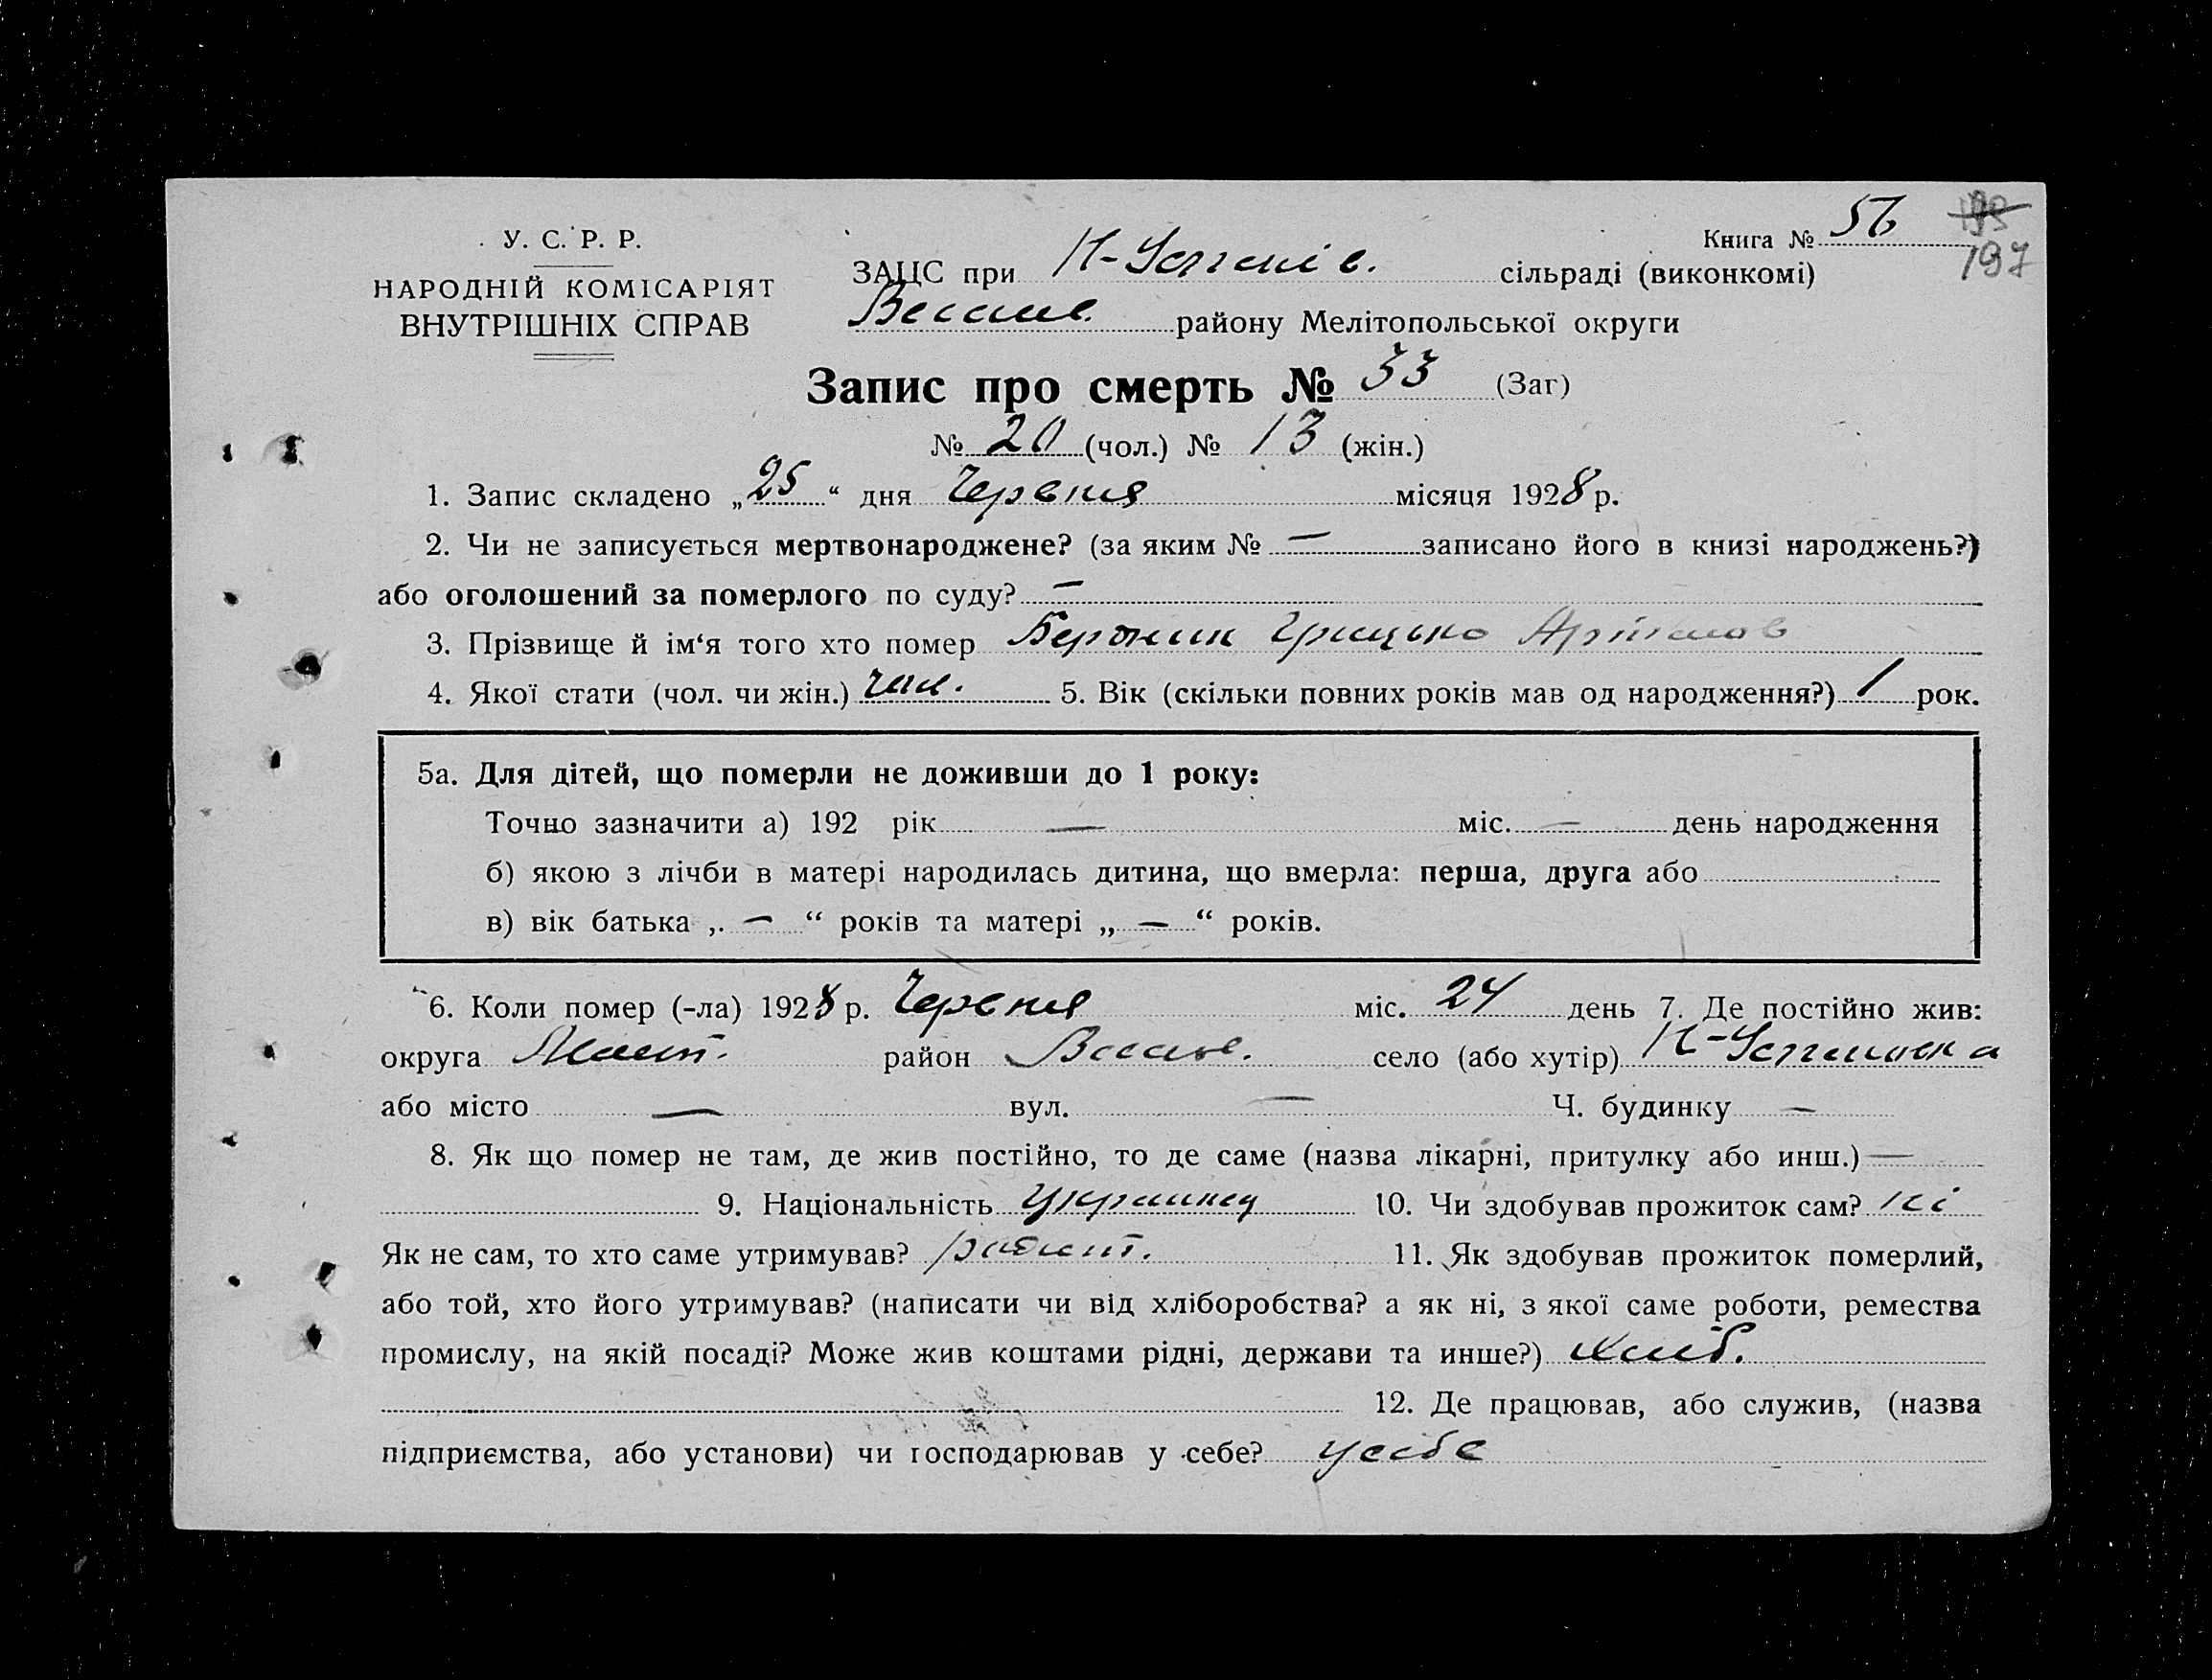 У. С. Р. Р.
НАРОДНІЙ КОМІСАРІЯТ
ВНУТРІШНІХ СПРАВ
Книга № 56
197
ЗАЦС при Н-Успенів. сільраді (виконкомі)
Весело. району Мелітопольської округи
Запис про смерть № 33 (Заг)
№ 20 (чол.) № 13 (жін.)
1. Запис складено „25“ дня Червня місяця 1928 р.
2. Чи не записується мертвонароджене? (за яким № — записано його в книзі народжень?)
або оголошений за померлого по суду? —
3. Прізвище й ім‘я того хто помер Грицько
4. Якої стати (чол. чи жін.) чол. 5. Вік (скільки повних років мав од народження?) 1 рок.
5а. Для дітей, що померли не доживши до 1 року:
Точно зазначити а) 192 рік — міс. — день народження
б) якою з лічби в матері народилась дитина, що вмерла: перша, друга або
в) вік батька „ — “ років та матері „ — “ років.
6. Коли помер (-ла) 1928 р. Червня міс. 24 день 7. Де постійно жив:
округа Меліт. район Весело. село (або хутір) Н-Успеновка
або місто — вул. — Ч. будинку —
8. Як що помер не там, де жив постійно, то де саме (назва лікарні, притулку або инш.) —
9. Національність Українец 10. Чи здобував прожиток сам? ні
Як не сам, то хто саме утримував? 11. Як здобував прожиток померлий,
або той, хто його утримував? (написати чи від хліборобства? а як ні, з якої саме роботи, ремества
промислу, на якій посаді? Може жив коштами рідні, держави та инше?) хліб.
12. Де працював, або служив, (назва
підприємства, або установи) чи господарював у себе? у себе